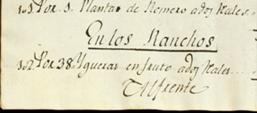 101 Por 3. Plantas de Romero a dos Reales
En los Ranchos
102 Por 38 Ygueras en fruto a dos Reales
Al frente